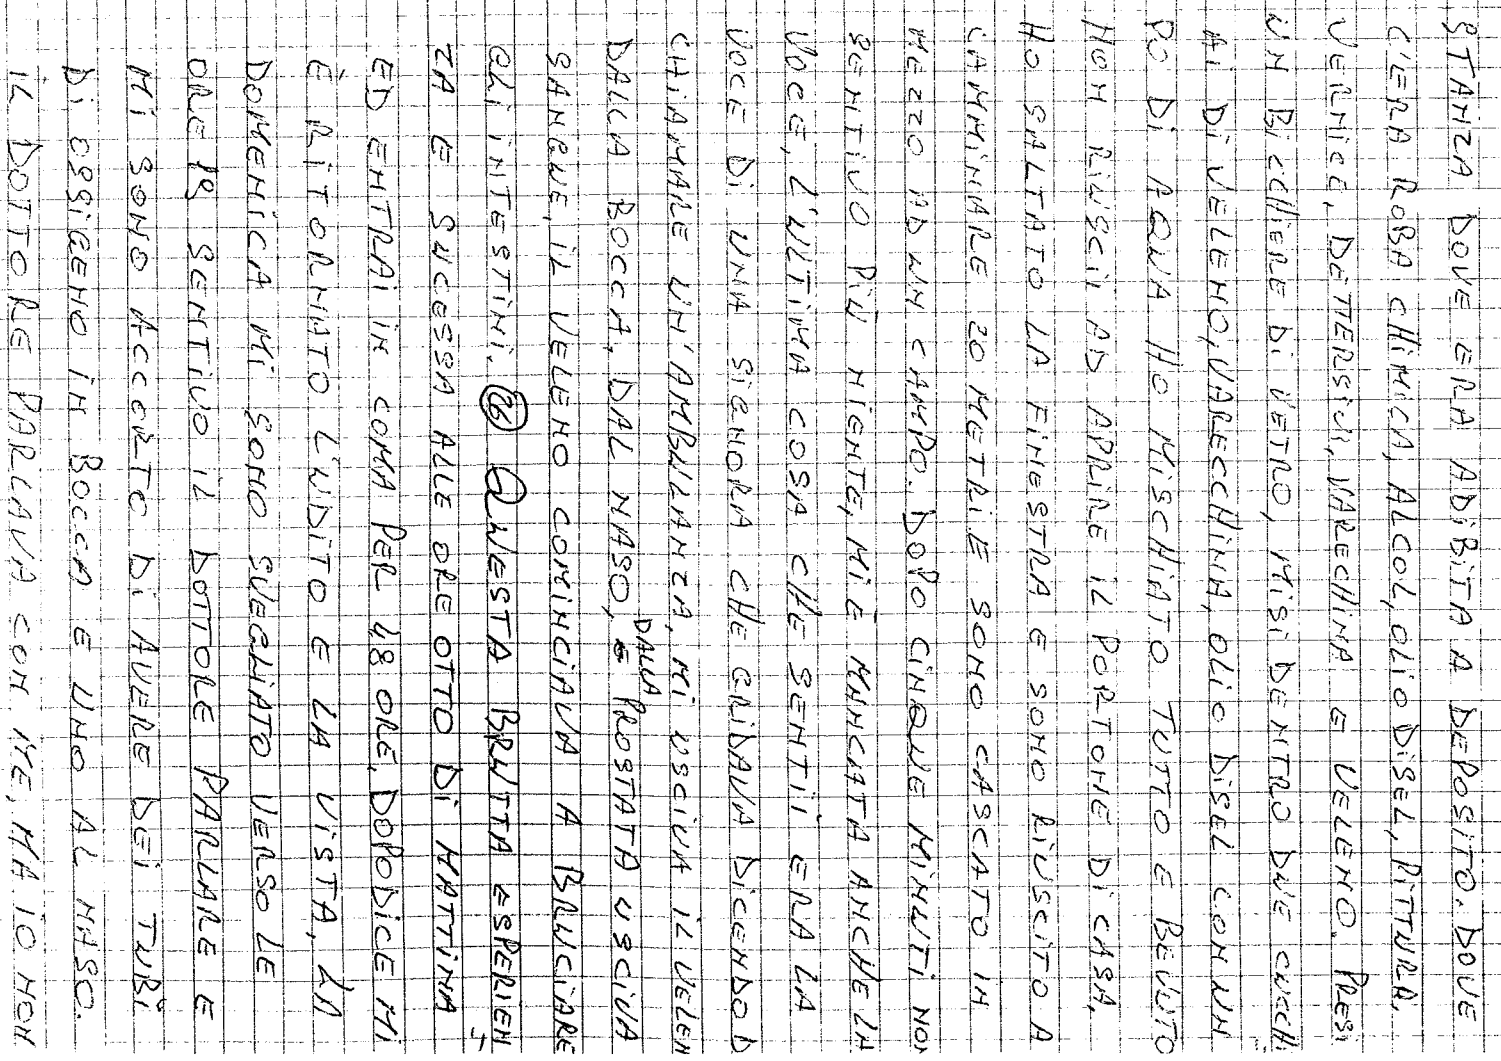 STANZA DOVE ERA ADIBITA A DEPOSITO. DOVE
C'ERA ROBA CHIMICA, ALCOL, OLIO DISEL, PITTURA.
VERNICE, DETTERSIVI, VARECHINA E VELENO. PRESI
UN BICCHIERE DI VETRO, MISI DENTRO DUE CUCCHI
AI DI VELENO, VARECCHINA, OLIO DISEL CON UN
PO DI AQUA HO MISCHIATO TUTTO E BEVUTO
NON RIUSCII AD APRIRE IL PORTONE DI CASA,
HO SALTATO LA FINESTRA E SONO RIUSCITO A
CAMMINARE 20 METRI E SONO CASCATO IN
MEZZO AD UN CAMPO. DOPO CINQUE MINUTI NON
SENTIVO PIÙ NIENTE, MI È MANCATA ANCHE LA
VOCE, L'ULTIMA COSA CHE SENTII ERA LA
VOCE DI UNA SIGNORA CHE GRIDAVA DICENDO D
CHIAMARE UN'AMBULANZA, MI USCIVA IL VELEN
DALLA BOCCA, DAL NASO, DALLA PROSTATA USCIVA
SANGUE, IL VELENO COMINCIAVA A BRUCIARE
GLI INTESTINI. 26 QUESTA BRUTTA ESPERIEN
ZA E SUCESSA ALLE ORE OTTO DI MATTINA
ED ENTRAI IN COMA PER 48 ORE, DOPODICE MI
È RITORNATO L'UDITO E LA VISTA, LA
DOMENICA MI SONO SVEGHIATO VERSO LE
ORE 18 SENTIVO IL DOTTORE PARLARE E
MI SONO ACCORTO DI AVERE DEI TUBI
DI OSSIGENO IN BOCCA E UNO AL NASO.
IL DOTTORE PARLAVA CON ME, MA IO NON